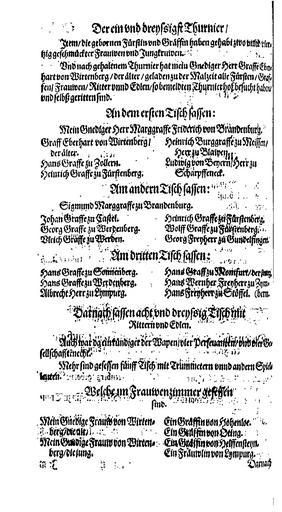 Der ein vnd dreyssigst Thurnier/
Item/die gebornen Fürstin vnd Gräffin haben gehabt zwo vnd
tzig geschmückter Frauwen vnd Jungkrauwen.
Vnd nach gehaltenem Thurnier hat mein Gnediger Herr Graffe Eber
hart von Wirtenberg/ der älter/ geladen zu der Malzeit alle Fürsten/ Gra
fen/ Frauwen/ Ritter vnnd Edlen/ so bemeldten Thurnierhof besucht haben/
vnd selbß geritten sind.
An dem ersten Tisch sassen:
Mein Gnediger Herr Marggraffe Friderich von Brandenburg.
Graff Eberhart von Wirtenberg/
der älter.
Hans Graffe zu Zollern.
Heinrich Graffe zu Fürstenberg.
Heinrich Burggraffe zu Meissen/
Herr zu Blawen.
Ludwig von Beyern/ Herr zu
Scharpffeneck.
Am andern Tisch sassen:
Sigmund Marggraffe zu Brandenburg.
Johan Graffe zu Castel.
Georg Graffe zu Werdenberg.
Vlrich Graffe zu Werden.
Heinrich Graffe zu Fürstenberg.
Wolff Graffe zu Fürstenberg.
Georg Freyherr zu Gundelfingen.
Am dritten Tisch sassen:
Hans Graffe zu Sonnenberg.
Hans Graffe zu Werdenberg.
Albrecht Herr zu Lympurg.
Hans Graff zu Montfurt/ der jung.
Hans Wernher Freyherr zu Zym
Hans Freyherr zu Stöffel. (bern.
Darnach sassen acht vnd dreyssig Tisch mit
Rittern vnd Edlen.
Auch war der Wapen/ vier Perseuanten/ vnd vier Ge
sellschafftknecht.
Mehr sind gesessen fünff Tisch mit Trummetern vnnd andern Spil
leuten.
Welche im Frauwenzimmer gesessen
sind.
Mein Gnedige Frauw von Wirten-
berg/ die alt.
Mein Gnedige Frauw von Wirten-
berg/ die jung.
Ein Gräffin von Hohenloe.
Ein Gräffin von Oting.
Ein Gräffin von Helffenstein.
Ein Fräuwlin von Lympurg.
Darnach